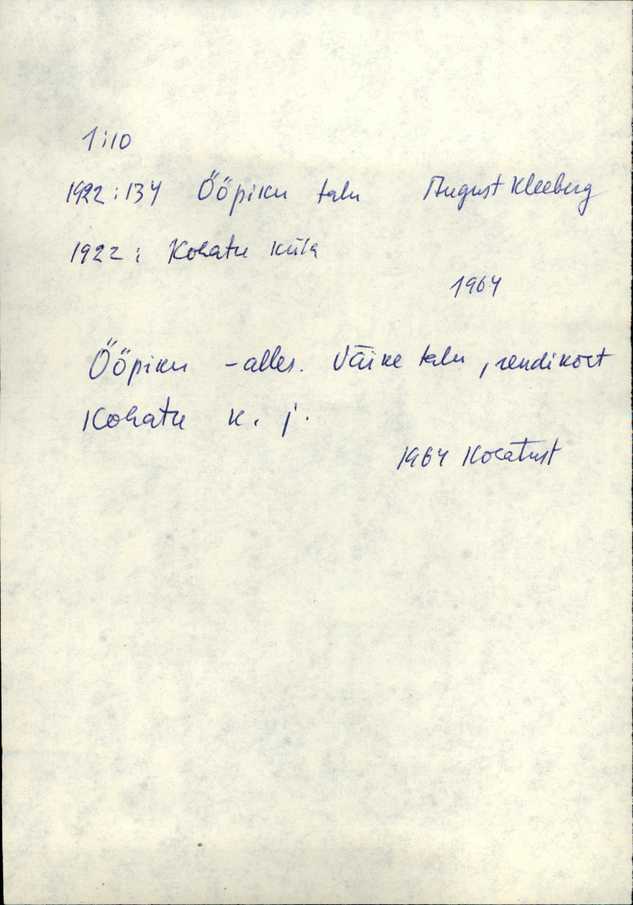 1:10
1922:134 Ööpiku talu August Kleeberg
1922: Kohatu küla
1964
Ööpiku - alles. Väike talu, rendikoht
Kohatu k. j.
1964 Kohatust